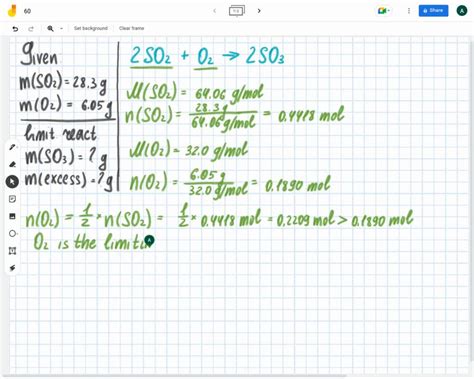 60
Set background
Clear frame
Share
A
Given
m(SO₂) = 28.3 g
m(O₂) = 6.05 g
limit react
m(SO₃) = ? g
m(excess) = ? g
2SO₂ + O₂ → 2SO₃
M(SO₂) = 64.06 g/mol
n(SO₂) = 28.3 g / 64.06 g/mol = 0.4418 mol
M(O₂) = 32.0 g/mol
n(O₂) = 6.05 g / 32.0 g/mol = 0.1890 mol
n(O₂) = 1/2 × n(SO₂) = 1/2 × 0.4418 mol = 0.2209 mol > 0.1890 mol
O₂ is the limiti
A